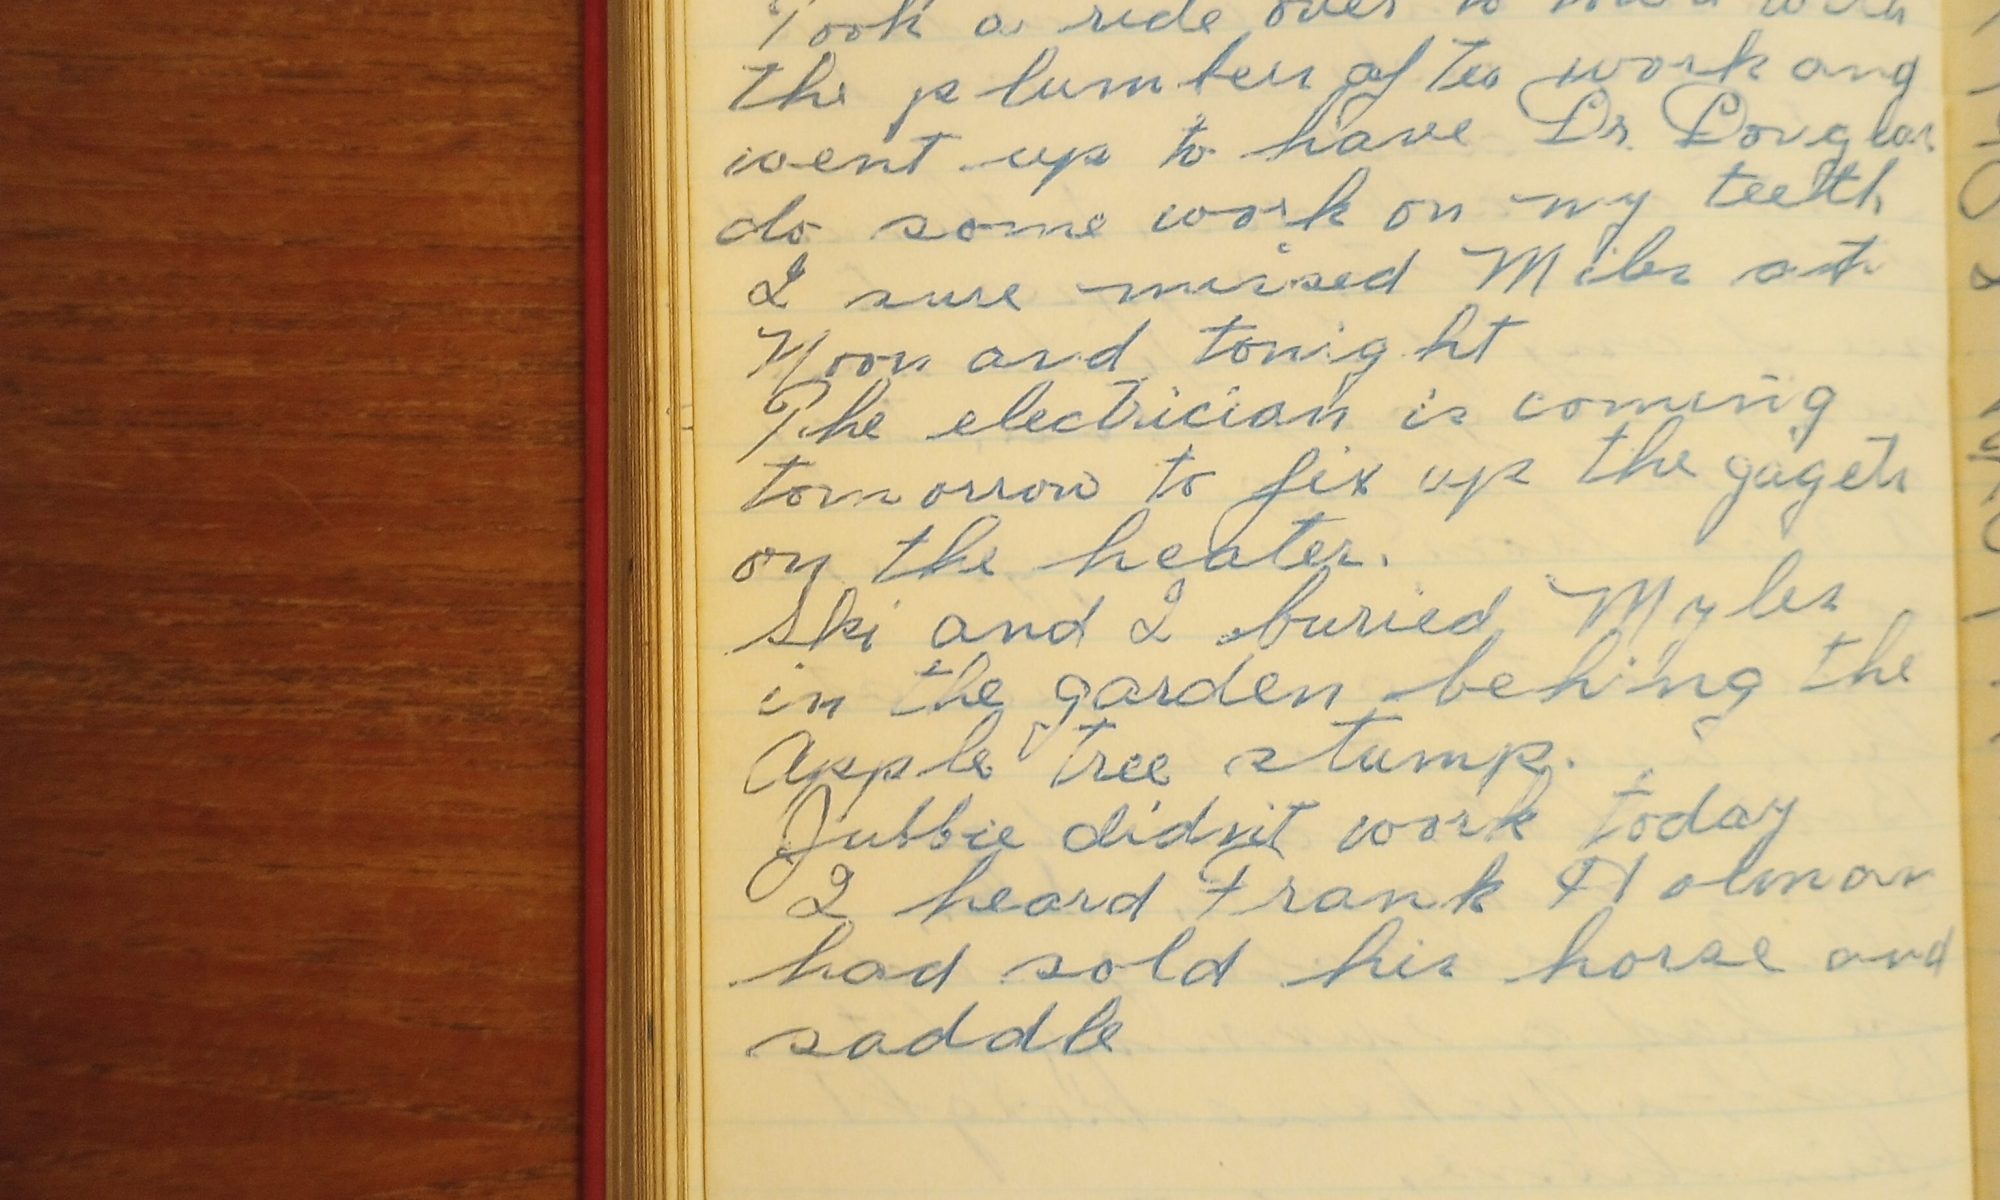 Took a ride over to
the plumbers after work and
went up to have Dr. Douglas
do some work on my teeth
I sure missed Miles at
Noon and tonight
The electrician is coming
tomorrow to fix up the gagets
on the heater.
Ski and I buried Myles
in the garden behing the
Apple tree stump.
Jubbie didn't work today
I heard Frank Holman
had sold his horse and
saddle